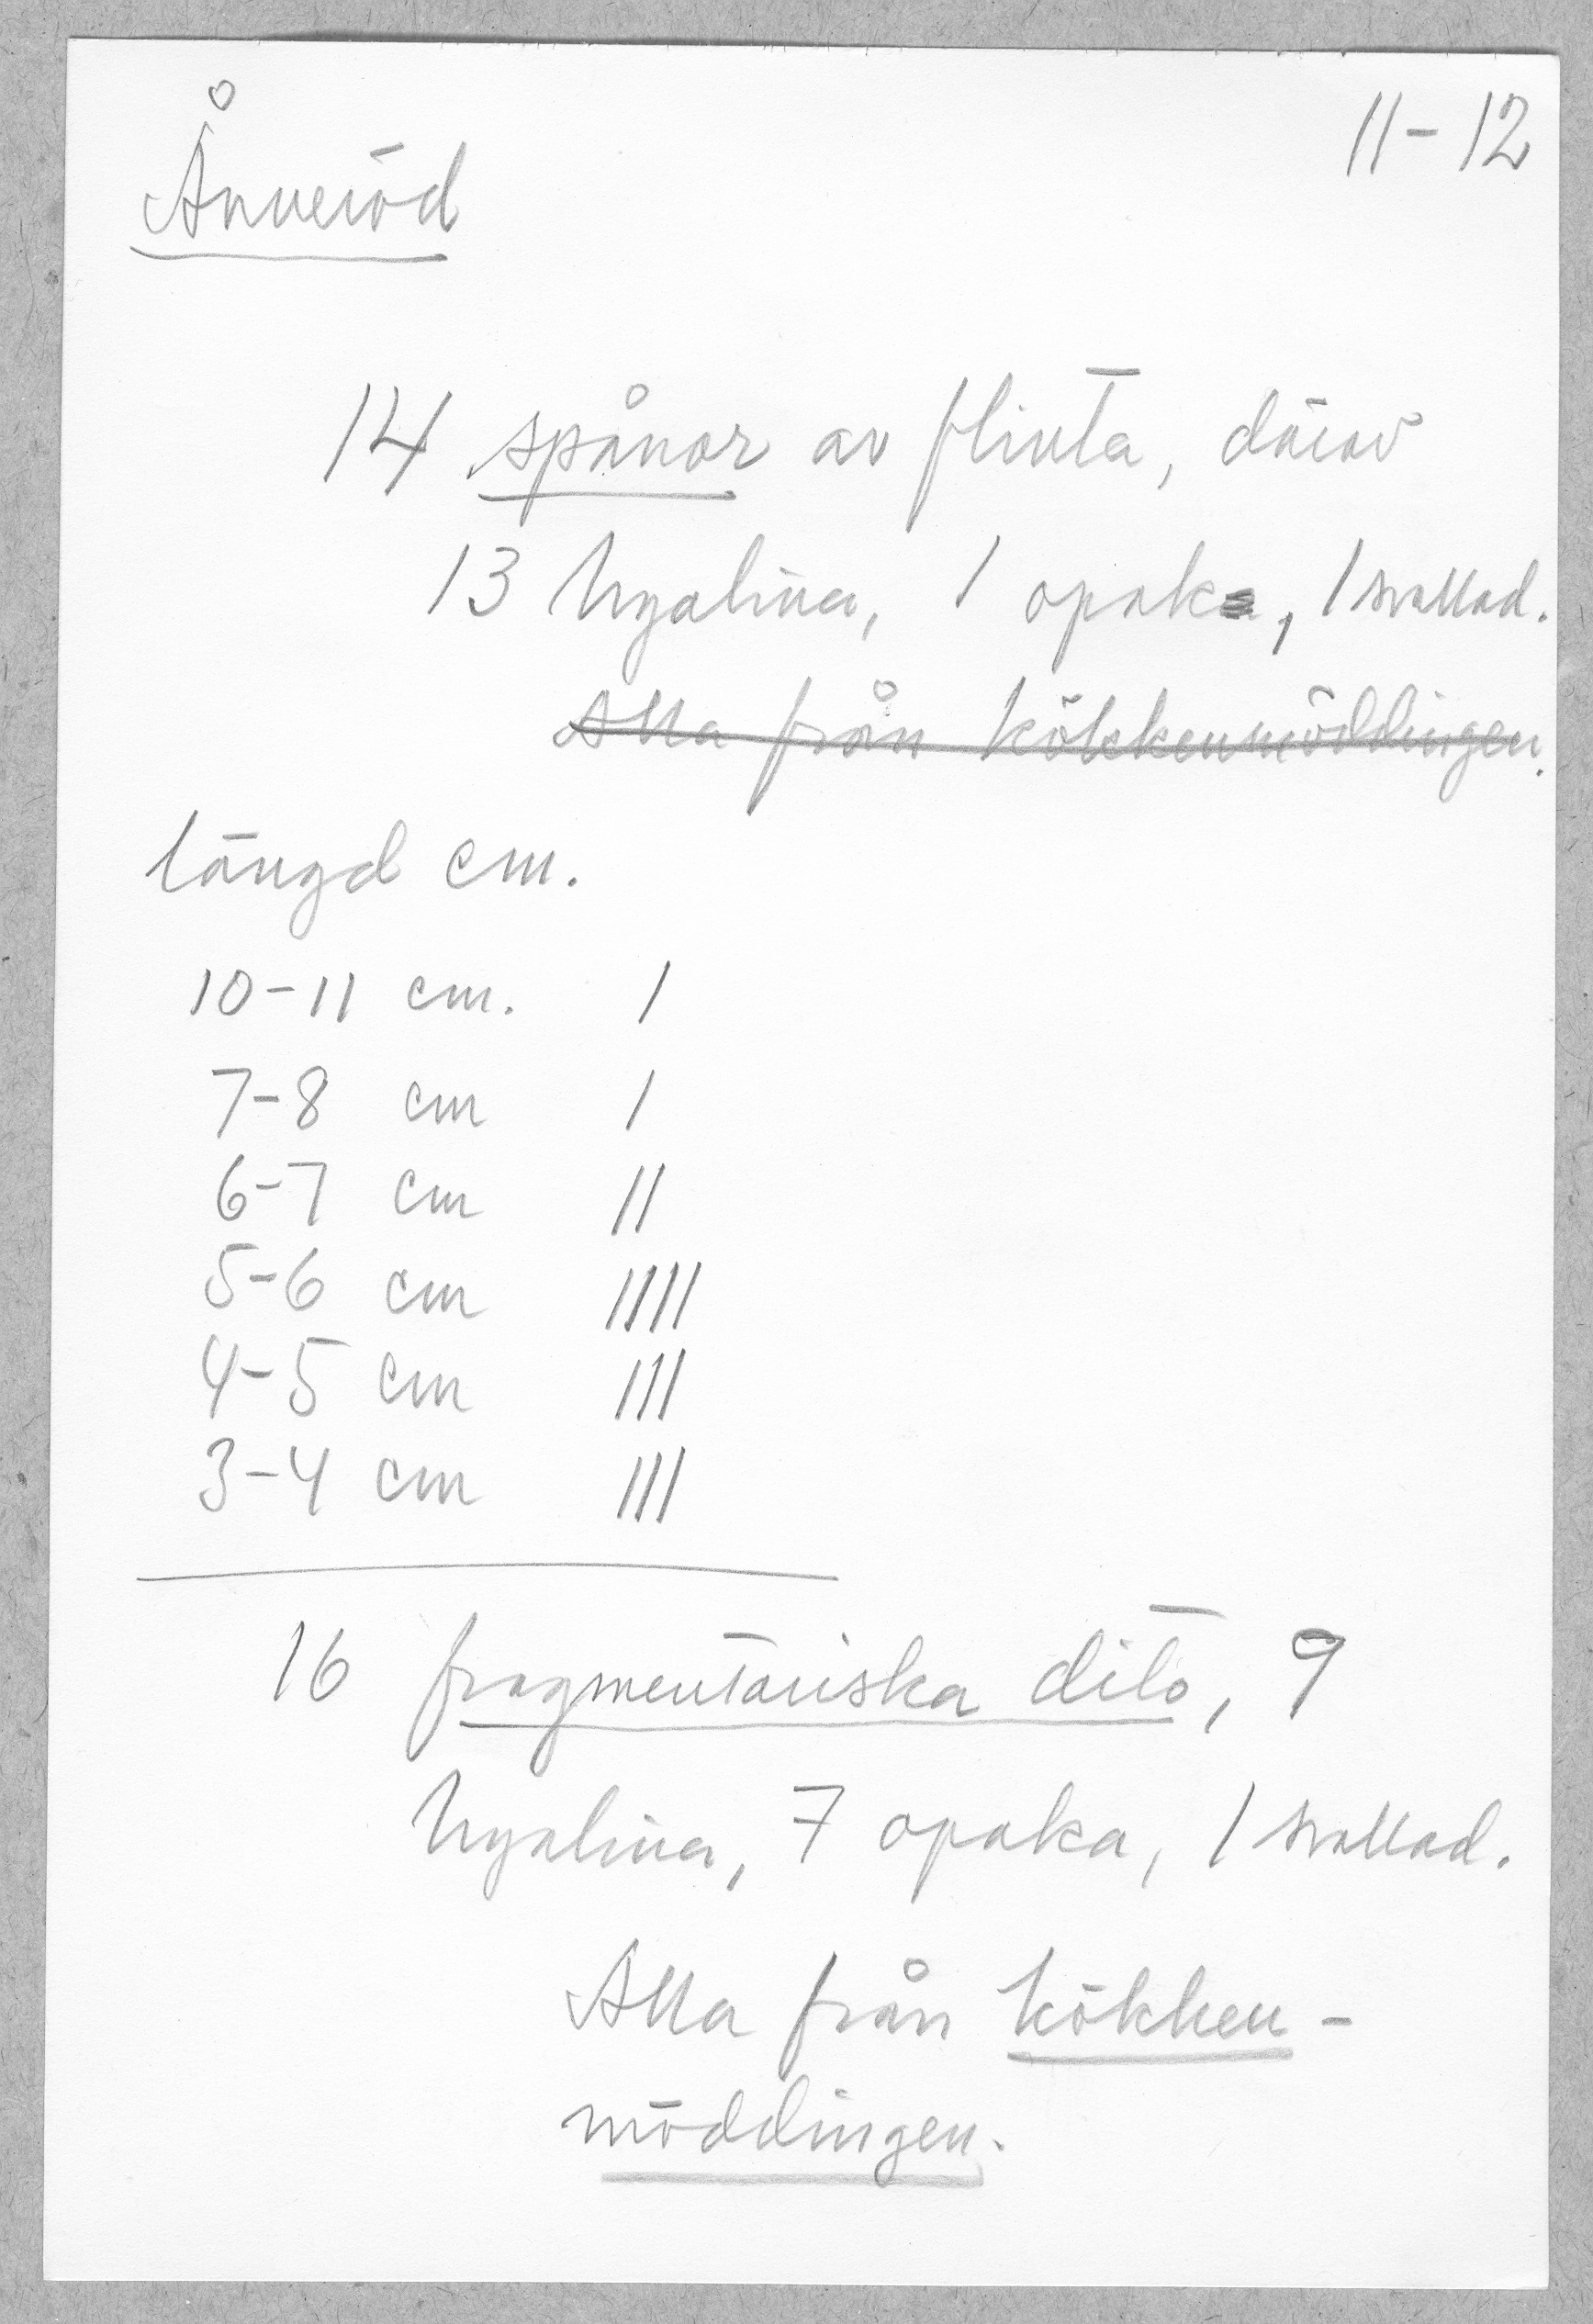 11-12
Ånneröd
14 spånor av flinta, därav
13 hyalina, 1 opak, 1 svallad.
Alla från kökkenmöddingen.
längd cm.
10-11 cm. I
7-8 cm I
6-7 cm II
5-6 cm IIII
4-5 cm III
3-4 cm III
16 fragmentariska dito, 9
hyalina, 7 opaka, 1 svallad.
Alla från kökken-
möddingen.